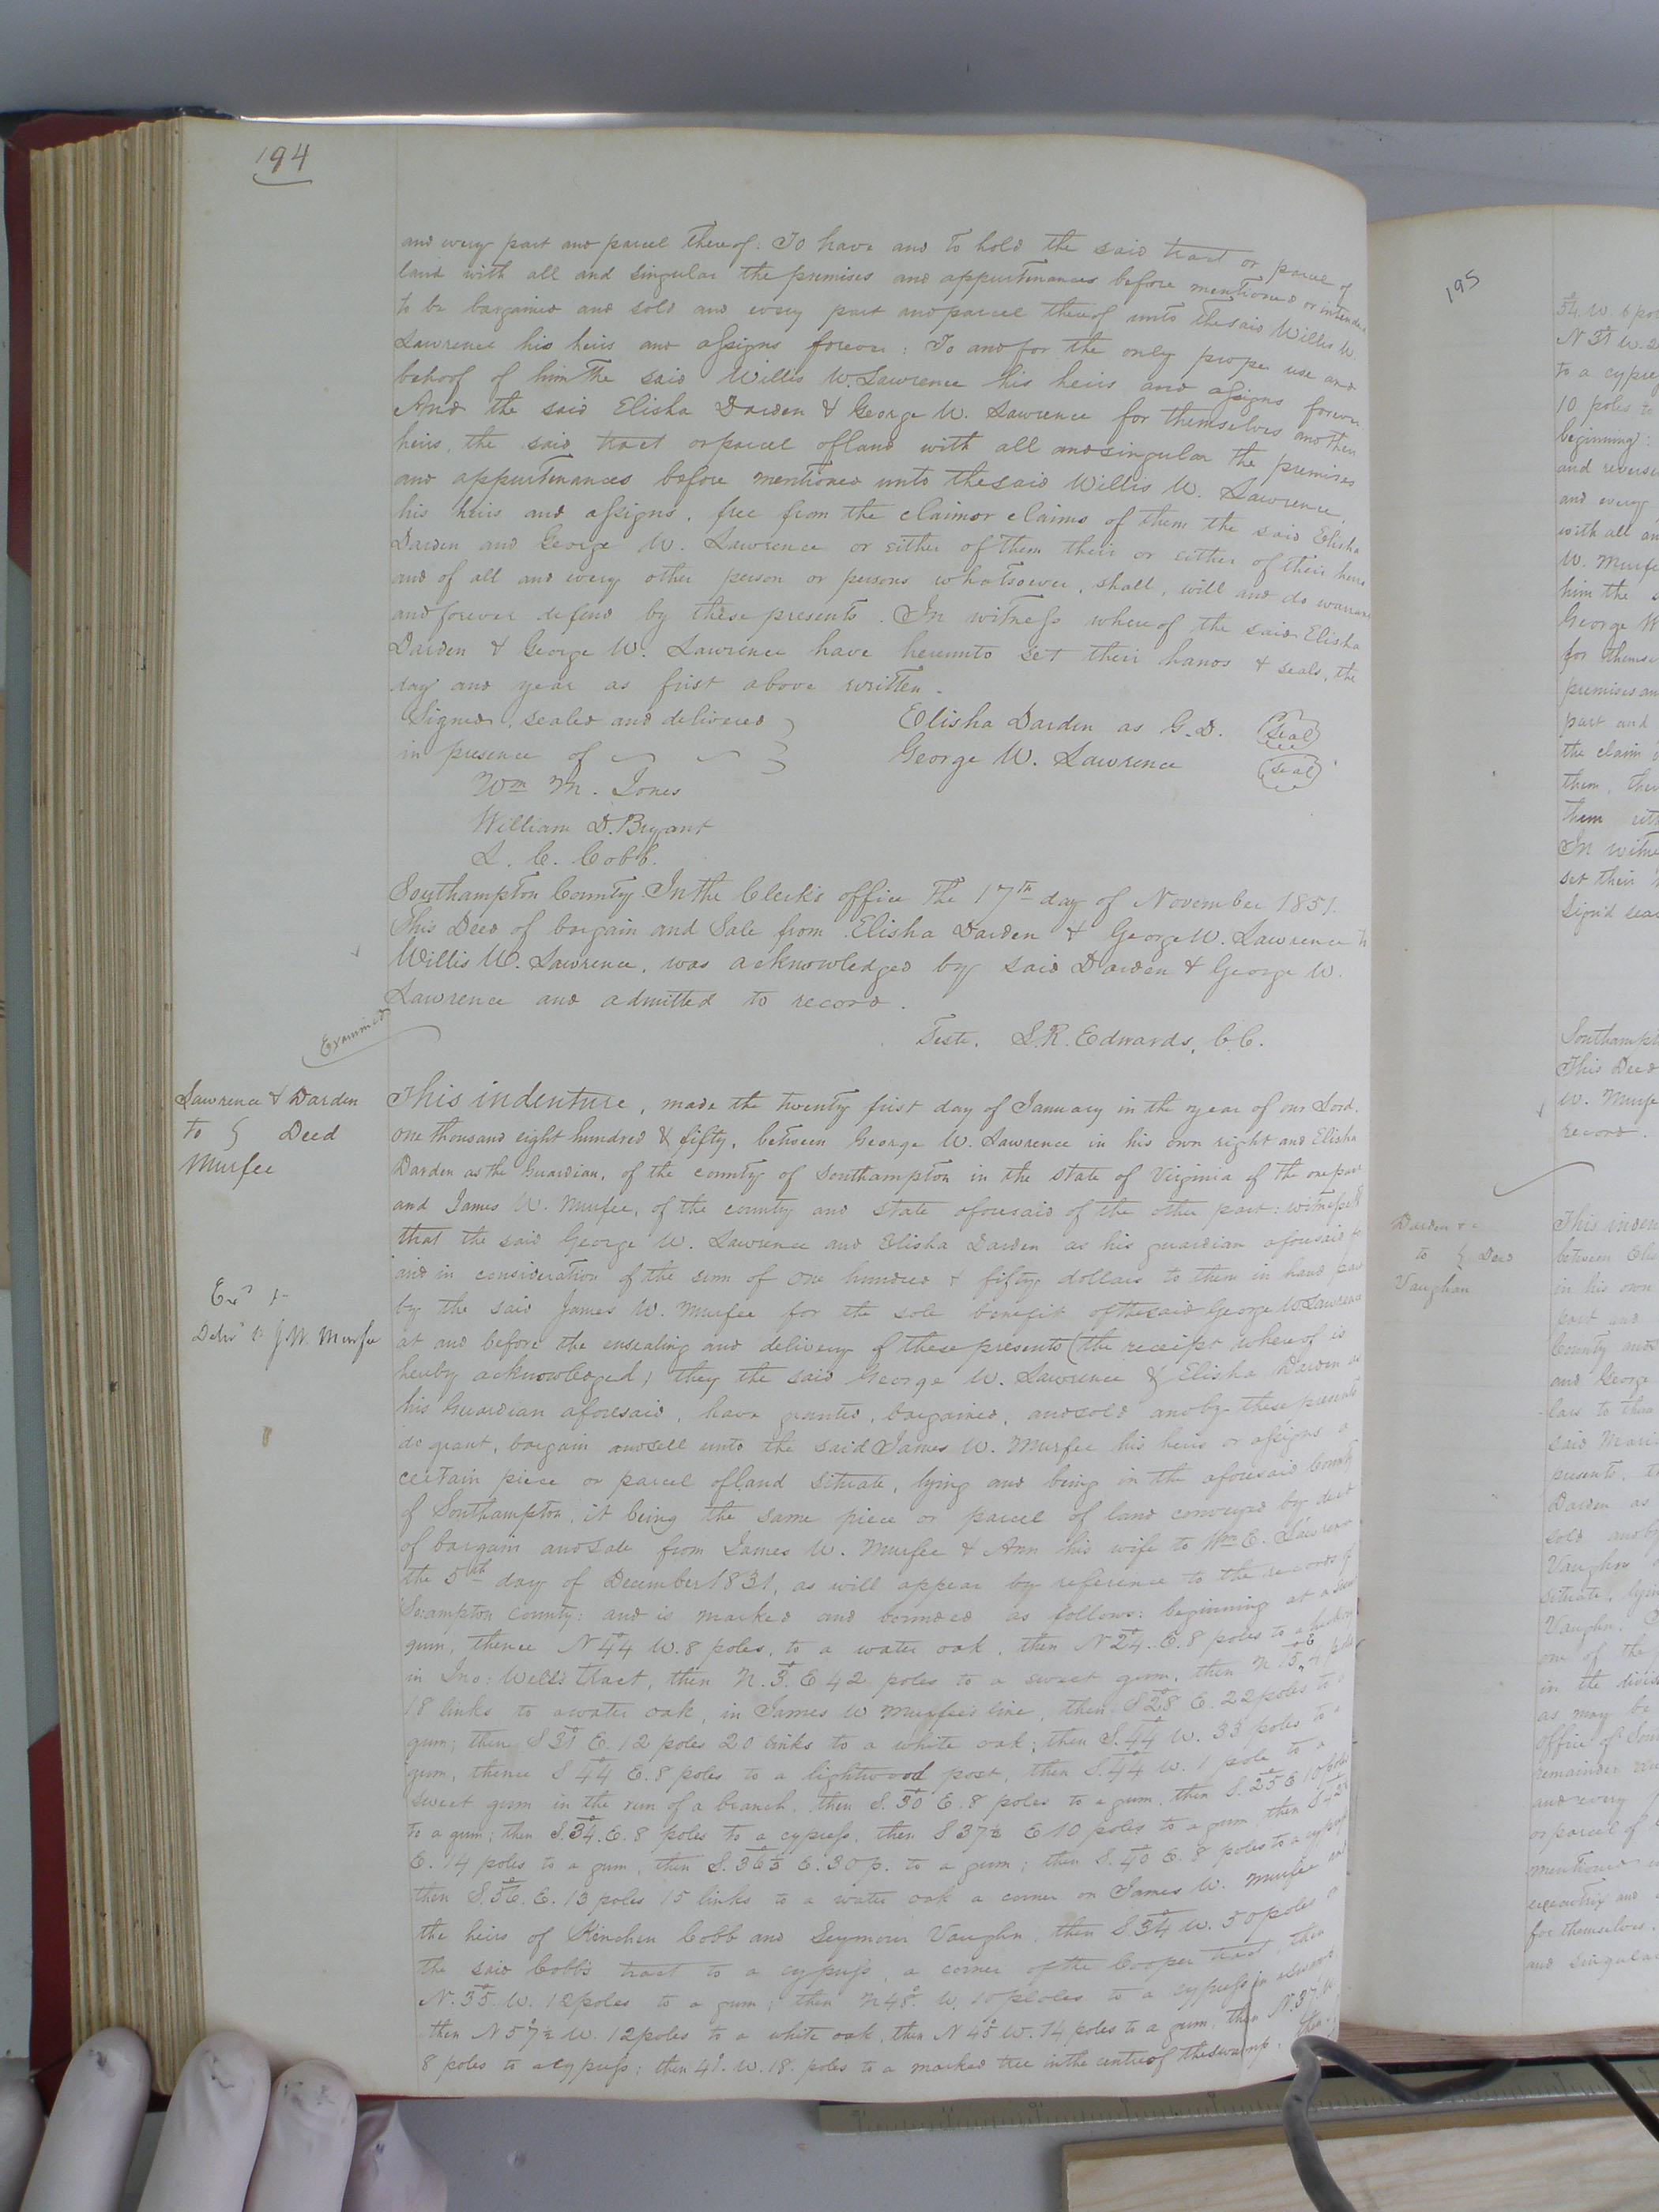 194
and every part and parcel thereof: To have and to hold the said tract or parcel of
land with all and singular the premises and appurtenances before mentioned or intended
to be bargained and sold and every part and parcel thereof unto the said Willis W.
Lawrence his heirs and assigns forever: To and for the only proper use and
behoof of him the said Willis W. Lawrence his heirs and assigns forever
And the said Elisha Darden & George W. Lawrence for themselves and their
heirs, the said tract or parcel of land with all and singular the premises
and appurtenances before mentioned unto the said Willis W. Lawrence,
his heirs and assigns, free from the claim or claims of them the said Elisha
Darden and George W. Lawrence or either of them their or either of their heirs
and of all and every other person or persons whatsoever, shall, will and do warrant
and forever defend by these presents. In witness whereof the said Elisha
Darden & George W. Lawrence have hereunto set their hands & seals, the
day and year as first above written.
Signed, sealed and delivered
in presence of
Elisha Darden as G.D. (Seal)
George W. Lawrence (seal)
Wm M. Jones
William D. Bryant
L. C. Cobb.
Southampton County. In the Clerk's office the 17th day of November 1851.
This Deed of bargain and Sale from Elisha Darden & George W. Lawrence to
Willis W. Lawrence, was acknowledged by said Darden & George W.
Lawrence and admitted to record.
Teste, L.R. Edwards, C.C.
Examined
Lawrence & Darden
to } Deed
Murfee
Exd &
Deld to J. W. Murfee
This indenture, made the twenty first day of January in the year of our Lord,
one thousand eight hundred & fifty, between George W. Lawrence in his own right and Elisha
Darden as the Guardian, of the county of Southampton in the state of Virginia of the one part
and James W. Murfee, of the county and state aforesaid of the other part: witnesseth
that the said George W. Lawrence and Elisha Darden as his guardian aforesaid for
and in consideration of the sum of one hundred & fifty dollars to them in hand paid
by the said James W. Murfee for the sole benefit of the said George W. Lawrence
at and before the ensealing and delivery of these presents (the receipt whereof is
hereby acknowledged) they the said George W. Lawrence & Elisha Darden as
his Guardian aforesaid, have granted, bargained, and sold and by these presents
do grant, bargain and sell unto the said James W. Murfee his heirs or assigns a
certain piece or parcel of land situate, lying and being in the aforesaid County
of Southampton, it being the same piece or parcel of land conveyed by deed
of bargain and sale from James W. Murfee & Ann his wife to Wm E. Lawrence
the 5th day of December 1831, as will appear by reference to the records of
Sc'ampton County: and is marked and bounded as follows: beginning at a sweet
gum, thence N 44° W. 8 poles, to a water oak, then N 24° E. 8 poles to a
in Jno: Wells tract, then N. 3° E 42 poles to a sweet gum, then N 15° E
18 links to a water oak, in James W Murfee's line, then S 28° E. 22 poles to a
gum; then S 31° E. 12 poles 20 links to a white oak; then S. 44° W. 33 poles to a
gum, thence S 44° E. 8 poles to a lightwood post, then S. 44° W. 1 pole to a
sweet gum in the run of a branch, then S. 30° E. 8 poles to a gum, then S. 25° E 10 poles
to a gum; then S. 34° E. 8 poles to a cypress, then S 37½ E 10 poles to a gum, then S 42°
E. 14 poles to a gum, then S. 36½ E. 30 p. to a gum; then S. 40° E. 8 poles to a cypress
then S. 56° E. 13 poles 15 links to a water oak a corner on James W. Murfee and
the heirs of Kinchen Cobb and Seymour Vaughn, then S 34° W. 50 poles on
the said Cobb's tract to a cypress, a corner of the Cooper tract, then
N. 35° W. 12 poles to a gum; then N 48° W. 10 poles to a cypress in
then N 57½ W. 12 poles to a white oak, then N 45° W. 14 poles to a gum, then N. 37° W.
8 poles to a cypress; then 41° W. 18 poles to a marked tree in the centre of the swamp, then
195
34° W. 6
N 31° W.
to a
10 poles to
beginning:
and
and every
with all
W. Murfee
him the
George W
for
premises
part and
the claim
them,
them
In
set their
Sign'd
Southampt
This Deed
W.
record.
Darden &c
to } Deed
Vaughan
This
between
in his own
part and
County and
and George
lars to
said
presents,
Darden as
sold
Vaughn
situate,
Vaughn.
one of the
in the
as may be
office of
remainder
and every
or parcel of
mentioned
executrix and
for themselves.
and singular